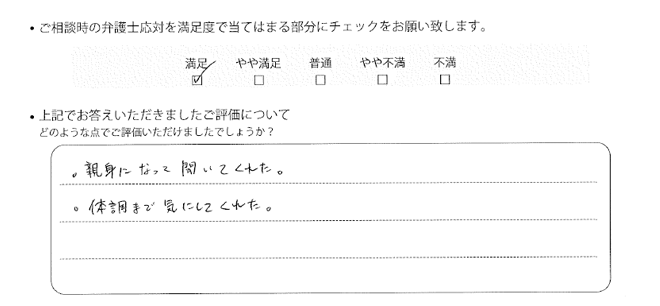 ・ご相談時の弁護士応対を満足度で当てはまる部分にチェックをお願い致します。
満足 やや満足 普通 やや不満 不満
☑ □ □ □ □
・上記でお答えいただきましたご評価について
どのような点でご評価いただけましたでしょうか？
。親身になって聞いてくれた。
。体調まで気にしてくれた。